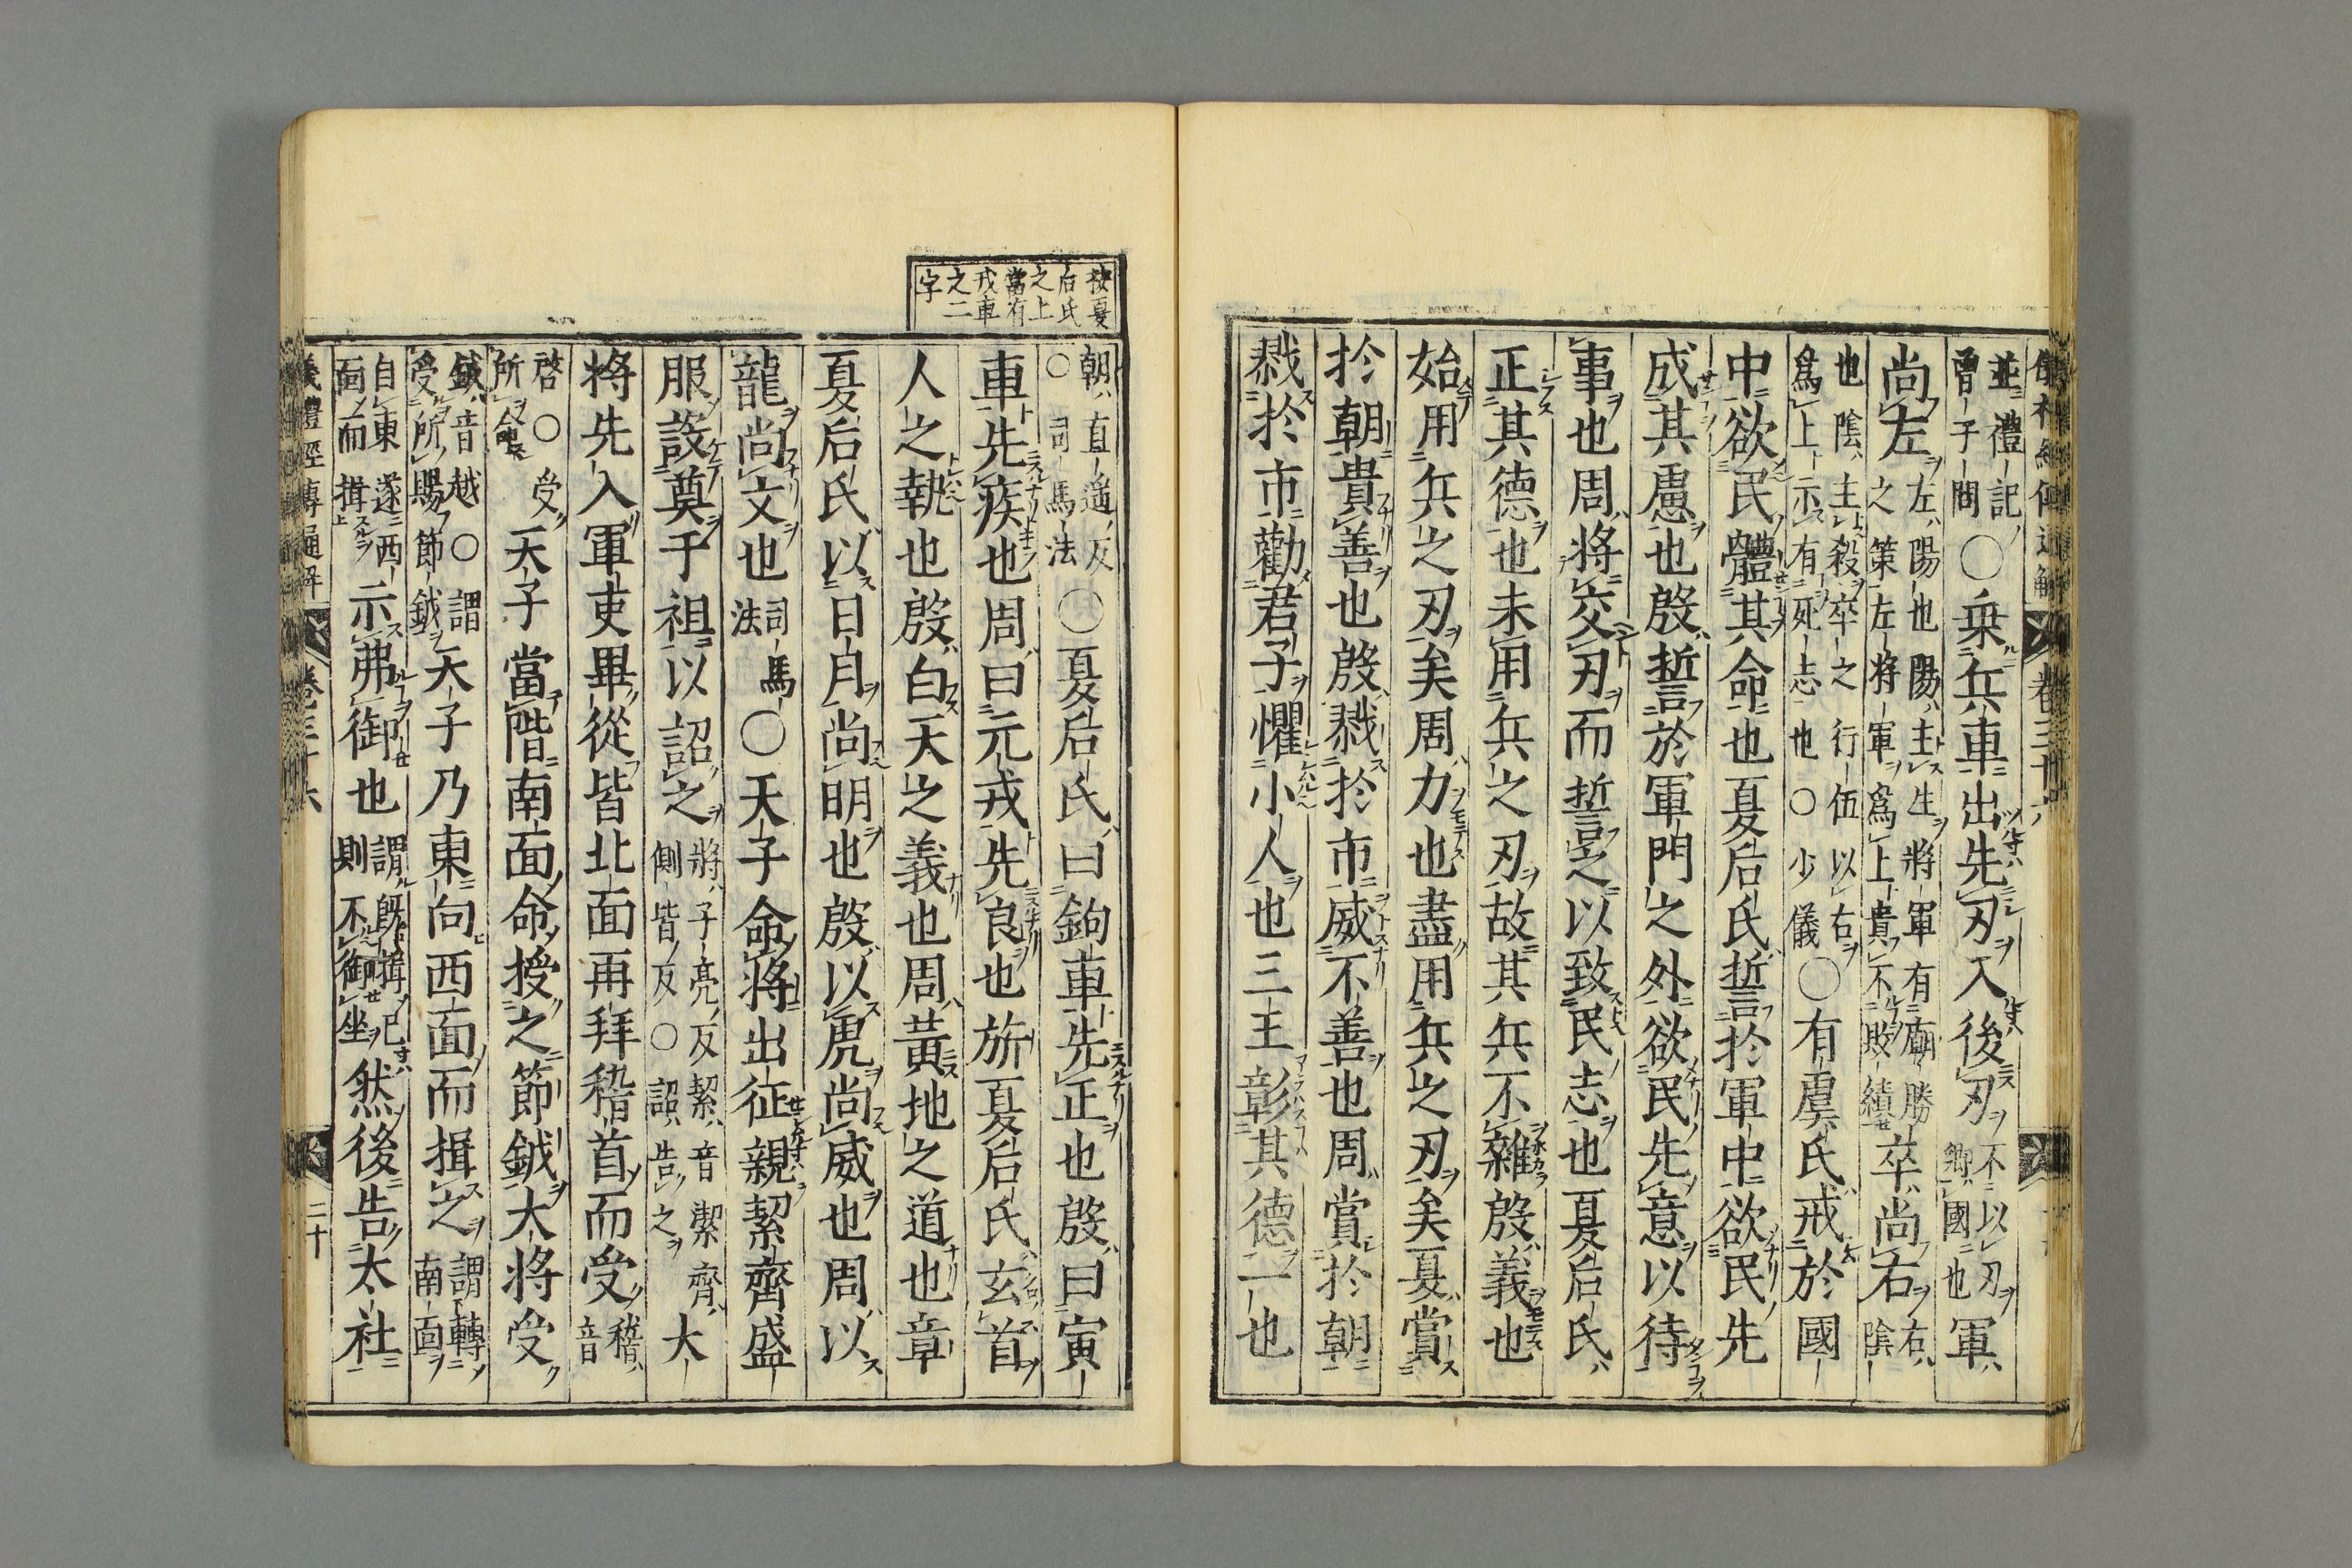 並禮記
曾子問○乗兵車出先刃入後刃不以刃
郷國也軍
尚左左陽也陽主生將軍有廟勝
之策左將軍爲上貴不敗績卒尚右右
陰
也陰主殺卒之行伍以右
爲上示有死志也○少儀○有虞氏戒於國
中欲民體其命也夏后氏誓於軍中欲民先
成其慮也殷誓於軍門之外欲民先意以待
事也周將交刃而誓之以致民志也夏后氏
正其德也未用兵之刃故其兵不雜殷義也
始用兵之刃矣周力也盡用兵之刃矣夏賞
於朝貴善也殷戮於市威不善也周賞於朝
戮於市勸君子懼小人也三王彰其德一也
按夏
后氏
之上
當有
戎車
之二
字
朝直遥反
○司馬法○夏后氏曰鉤車先正也殷曰寅
車先疾也周曰元戎先良也旂夏后氏玄首
人之執也殷白天之義也周黃地之道也章
夏后氏以日月尚明也殷以虎尚威也周以
龍尚文也司馬
法○天子命將出征親絜齊盛
服設奠于祖以詔之將子亮反絜音潔齊
側皆反○詔告之大
將先入軍吏畢從皆北面再拜稽首而受稽
音
啓○受
所命天子當階南面命授之節鉞大將受
鉞音越○謂
受所賜節鉞天子乃東向西面而揖之謂轉
南面
自東遂西
面而揖示弗御也謂既揖已
則不御坐然後告太社
儀禮經傳通解
卷三十六
二十